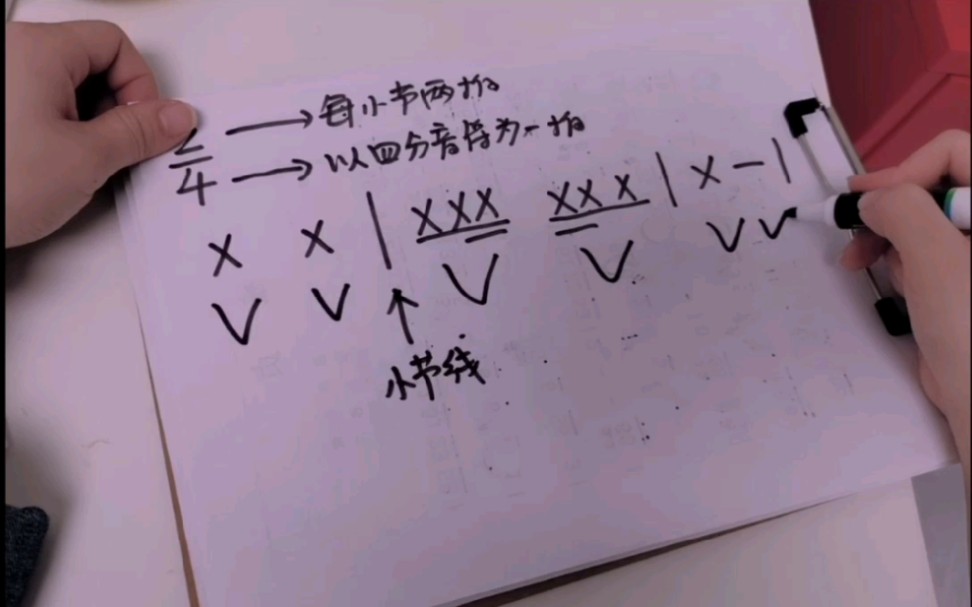 2 → 每小节两拍
4 → 以四分音符为一拍
X X | XXX XXX | X - |
V V V V V V
↑
小节线